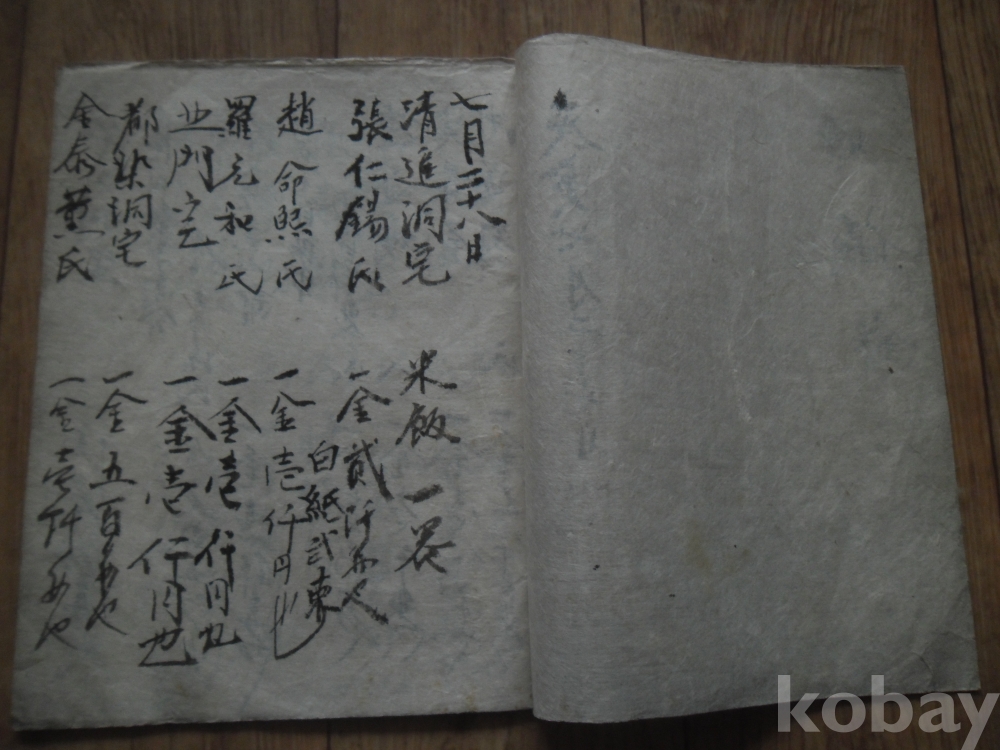 七月二十八日
清進洞宅 米飯 一器
張仁錫氏 一金貳仟円也
白紙弐束
趙命熙氏 一金壱仟円也
羅元和氏 一金壱仟円也
一金壱仟円也
都染洞宅 一金五百円也
金泰薰氏 一金壱仟円也
kobay